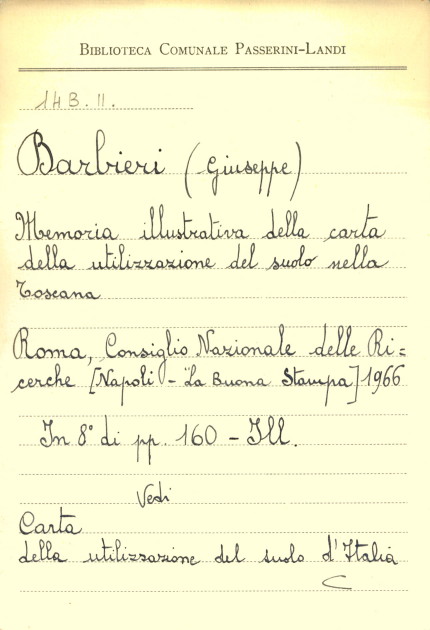 BIBLIOTECA COMUNALE PASSERINI-LANDI
14 B. II.
Barbieri (Giuseppe)
Memoria illustrativa della carta
della utilizzazione del suolo nella
Toscana
Roma, Consiglio Nazionale delle Ri=
cerche [Napoli - "La Buona Stampa] 1966
In 8° di pp. 160 - Ill.
Vedi
Carta
della utilizzazione del suolo d'Italia